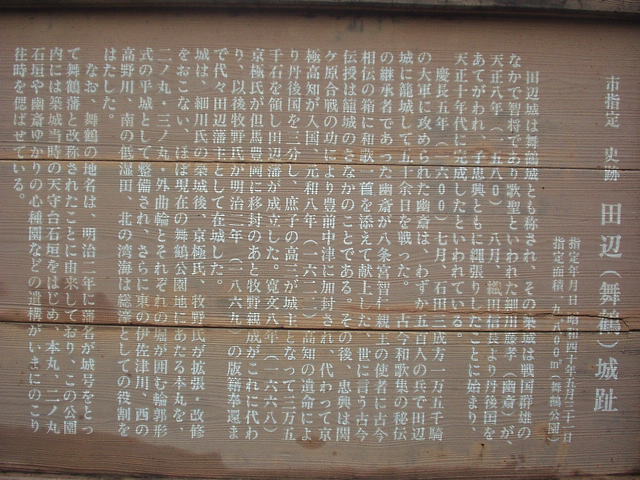 市指定　史跡　田辺（舞鶴）城址
指定年月日　昭和四十年五月二十一日
指定面積　一九八〇〇㎡（舞鶴公園）
田辺城は舞鶴城とも称され、その築城は戦国群雄の
なかで智将であり歌聖といわれた細川藤孝（幽斎）が、
天正八年（一五八〇）八月、織田信長より丹後国を
あてがわれ、子忠興とともに縄張りしたことに始まり、
天正十年代に完成したといわれている。
慶長五年（一六〇〇）七月、石田三成方一万五千騎
の大軍に攻められた幽斎は、わずか五百人の兵で田辺
城に籠城して五十余日を戦った。古今和歌集の秘伝
の継承者であった幽斎が八条宮智仁親王の使者に古今
相伝の箱に和歌一首を添えて献上した、世に言う古今
伝授は籠城のさなかのことである。その後、忠興は関
ケ原合戦の功により豊前中津に加封され、代わって京
極高知が入国、元和八年（一六二二）高知の遺命によ
り丹後国を三分し、庶子の高三が城主となって三万五
千石を領し田辺藩が成立した。寛文八年（一六六八）
京極氏が但馬豊岡に移封のあと牧野親成がこれに代わ
り、以後牧野氏が明治二年（一八六九）の版籍奉還ま
で代々田辺藩主として在城した。
城は、細川氏の築城後、京極氏、牧野氏が拡張・改修
をおこない、ほぼ現在の舞鶴公園地にあたる本丸を、
二ノ丸・三ノ丸・外曲輪とそれぞれの堀が囲む輪郭形
式の平城として整備され、さらに東の伊佐津川、西の
高野川、南の低湿田、北の湾海は総濠としての役割を
はたした。
なお、舞鶴の地名は、明治二年に藩名が城号をとっ
て舞鶴藩と改称されたことに由来しており、この公園
内には築城当時の天守台石垣をはじめ、本丸、二ノ丸
石垣や幽斎ゆかりの心種園などの遺構がいまにのこり
往時を偲ばせている。